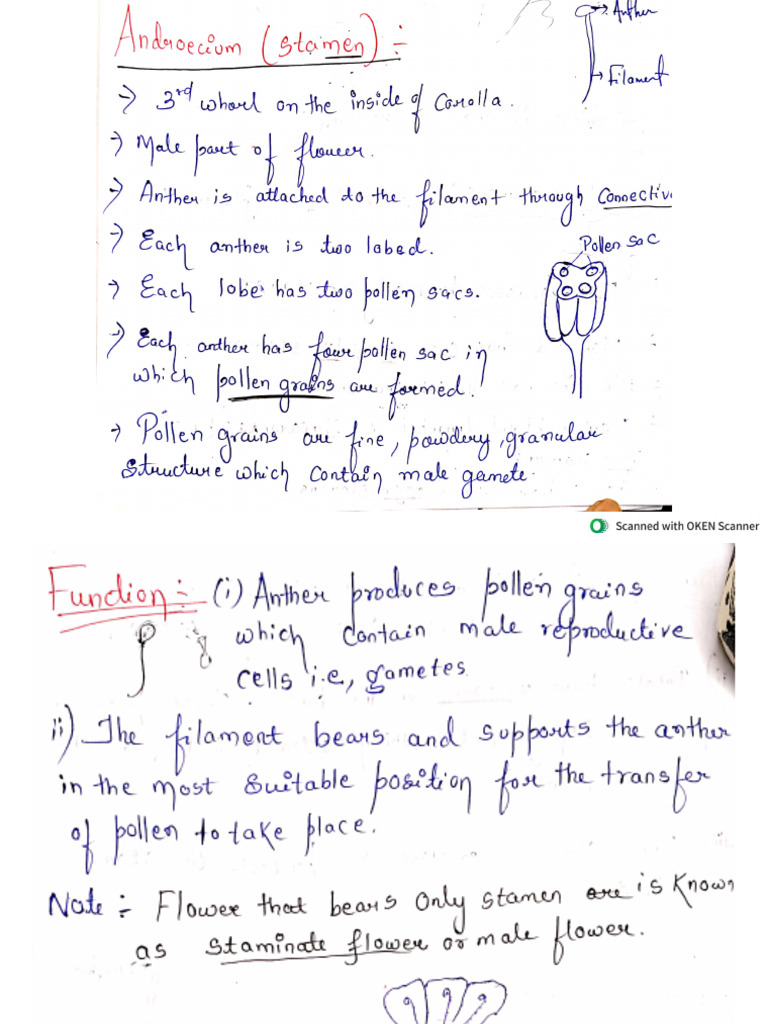 Androecium (stamen) :-
Anther
Filament
→ 3rd wharl on the inside of Corolla.
→ Male part of flower.
→ Anther is attached to the filament through Connectiv
→ Each anther is two labed.
Pollen sac
→ Each lobe has two pollen sacs.
→ Each anther has four pollen sac in
which pollen grains are formed.
→ Pollen grains are fine, powdery, granular
structure which contain male gamete.
Scanned with OKEN Scanner
Function :- (i) Anther produces pollen grains
which contain male reproductive
cells i.e, gametes
ii) The filament bears and supports the anther
in the most suitable position for the transfer
of pollen to take place.
Note :- Flower that bears only stamen are is known
as staminate flower or male flower.